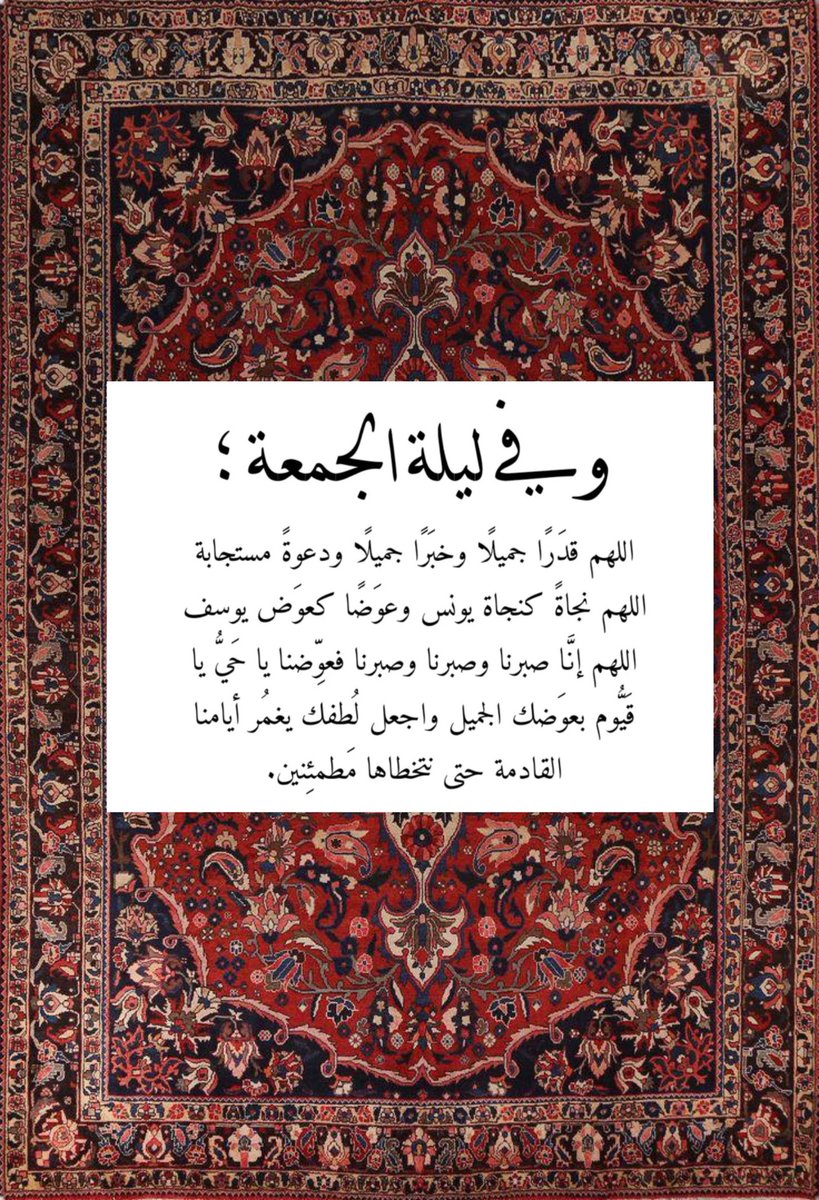 وفي ليلة الجمعة ؛
اللهم قدَرًا جميلًا وخبَرًا جميلًا ودعوةً مستجابة
اللهم نجاةً كنجاة يونس وعوَضًا كعوَض يوسف
اللهم إنَّا صبرنا وصبرنا وصبرنا فعوِّضنا يا حَيُّ يا
قَيُّوم بعوَضك الجميل واجعل لُطفك يغمُر أيامنا
القادمة حتى نتخطاها مَطمئِنين.